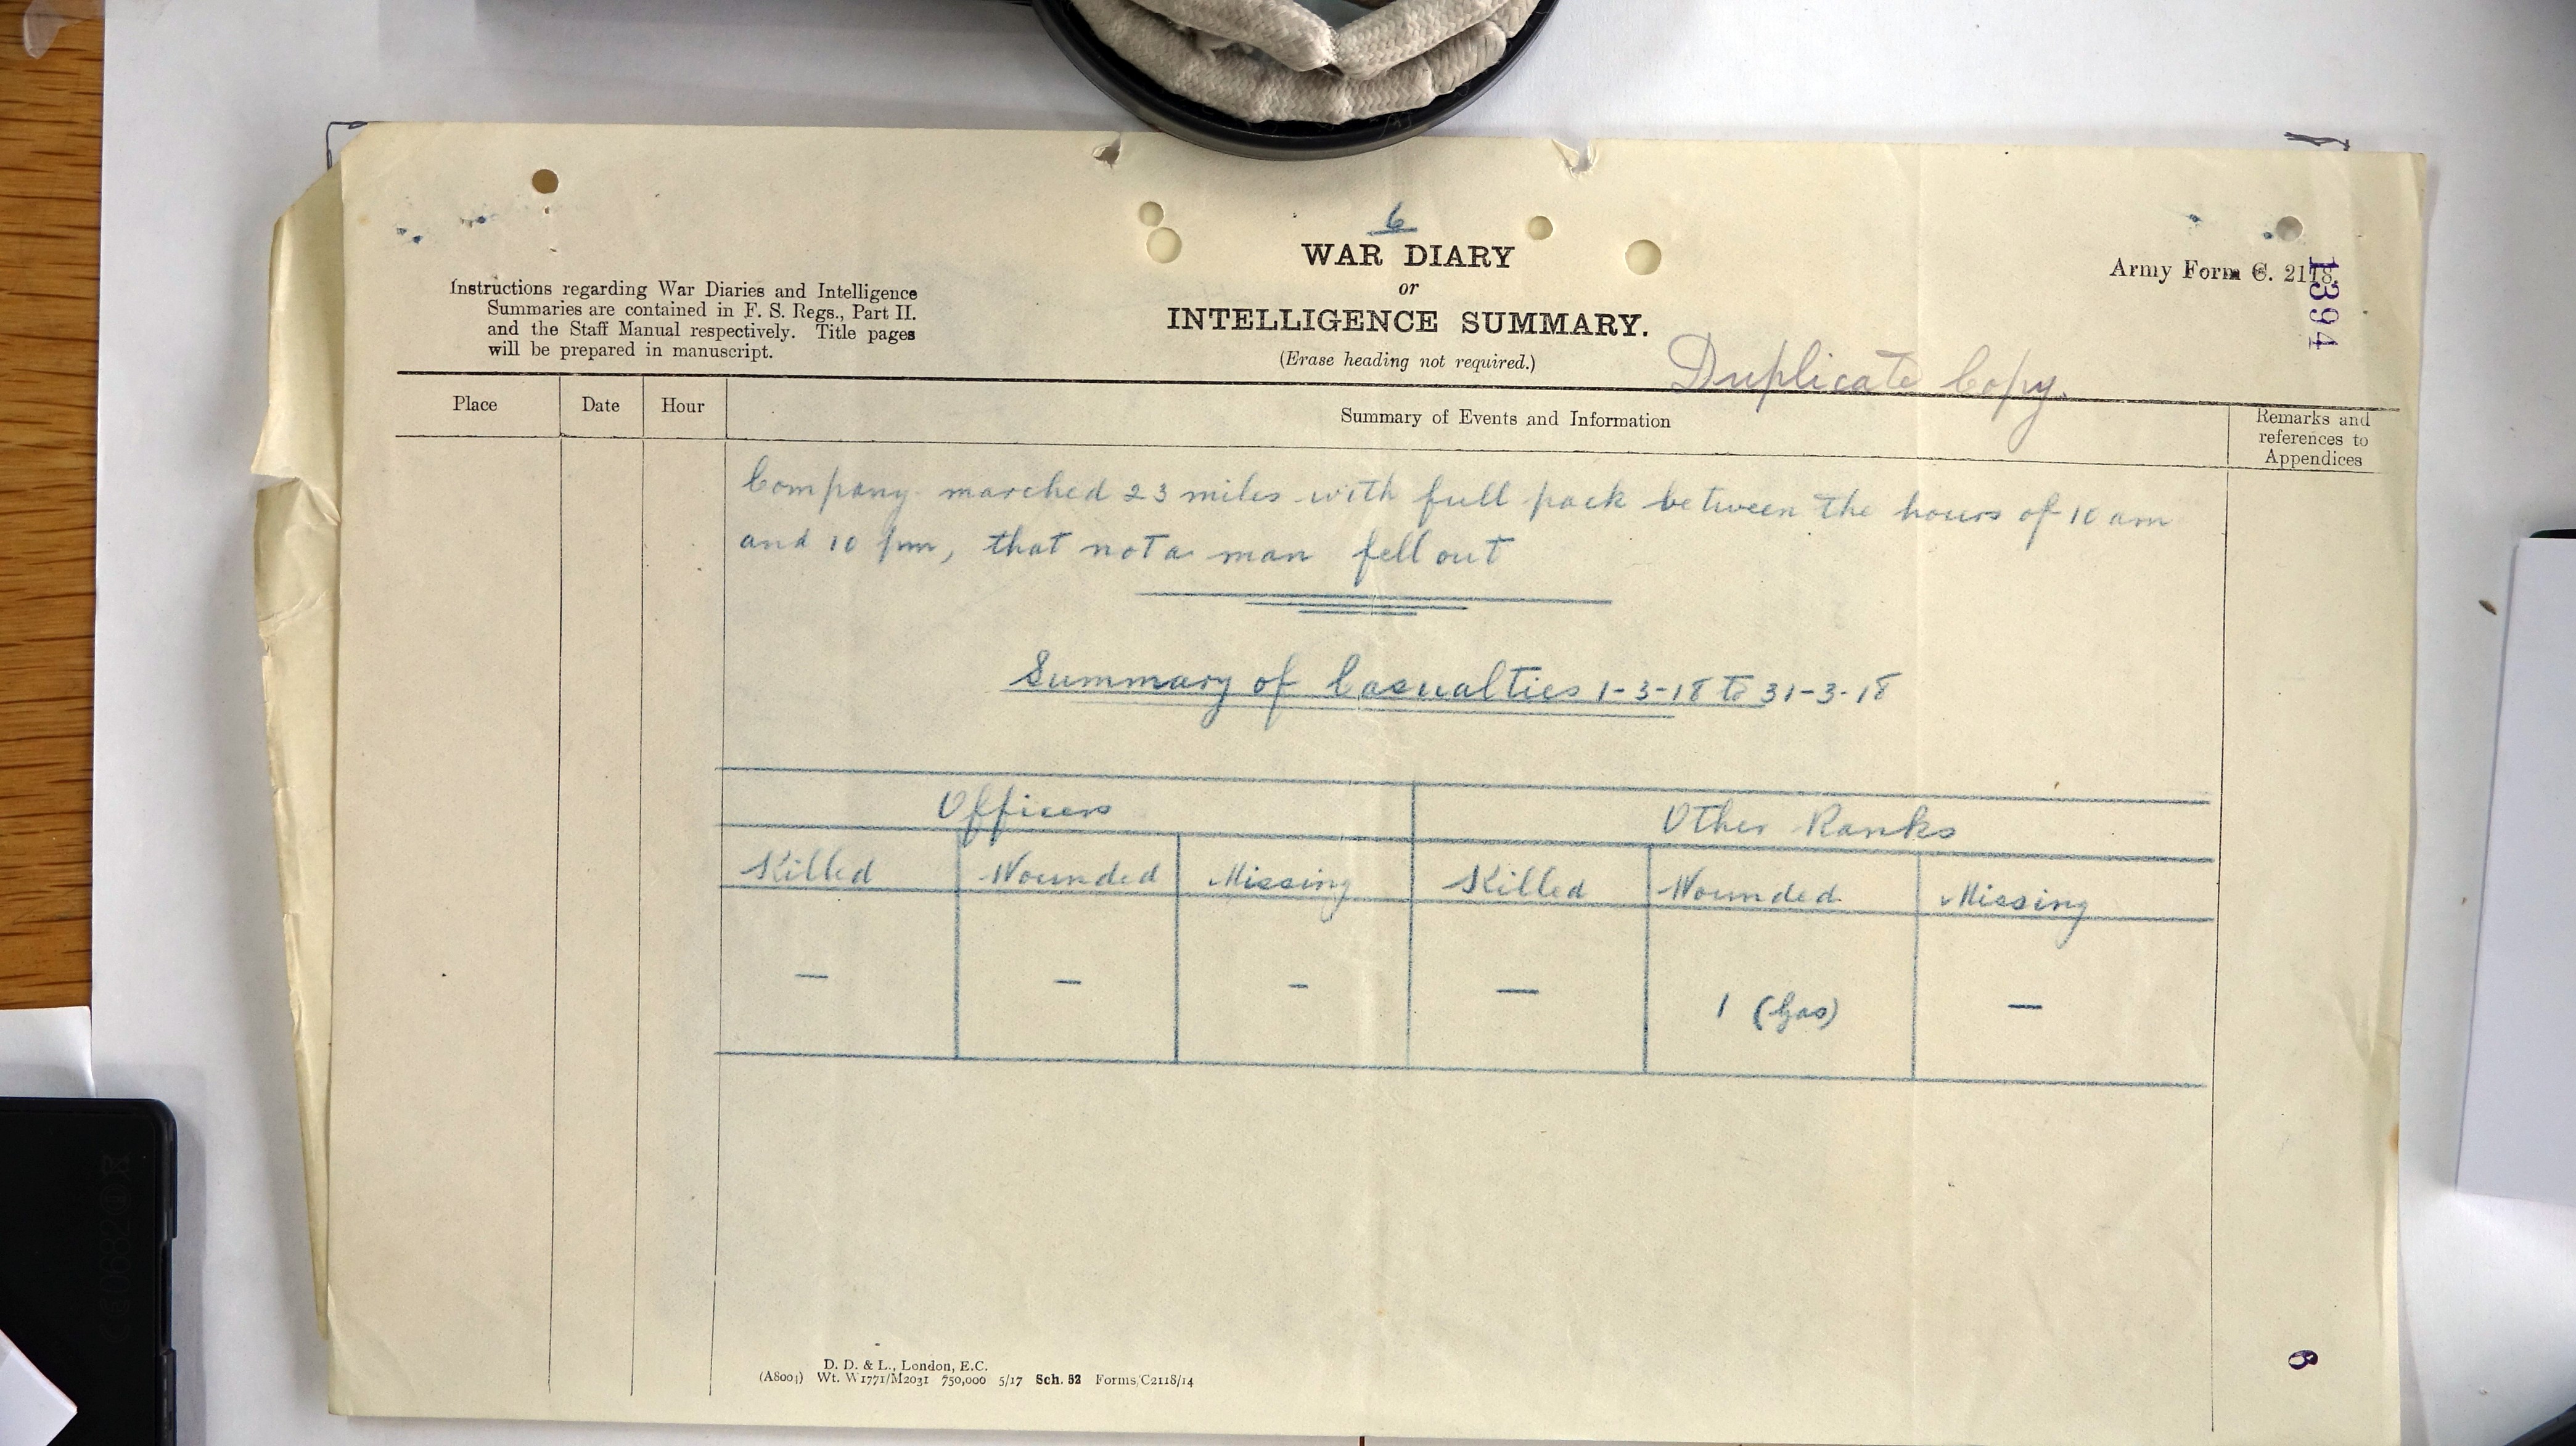 6
WAR DIARY
or
INTELLIGENCE SUMMARY.
(Erase heading not required.)
Instructions regarding War Diaries and Intelligence
Summaries are contained in F. S. Regs., Part II.
and the Staff Manual respectively. Title pages
will be prepared in manuscript.
Army Form C. 2118.
1394
Duplicate Copy.
Place Date Hour Summary of Events and Information Remarks and
references to
Appendices
Company marched 23 miles with full pack between the hours of 10 am
and 10 pm, that not a man fell out
Summary of Casualties 1-3-18 to 31-3-18
Officers Other Ranks
Killed Wounded Missing Killed Wounded Missing
— — — — 1 (Gas) —
D. D. & L., London, E.C.
(A8001) Wt. W1771/M2031 750,000 5/17 Sch. 52 Forms/C2118/14